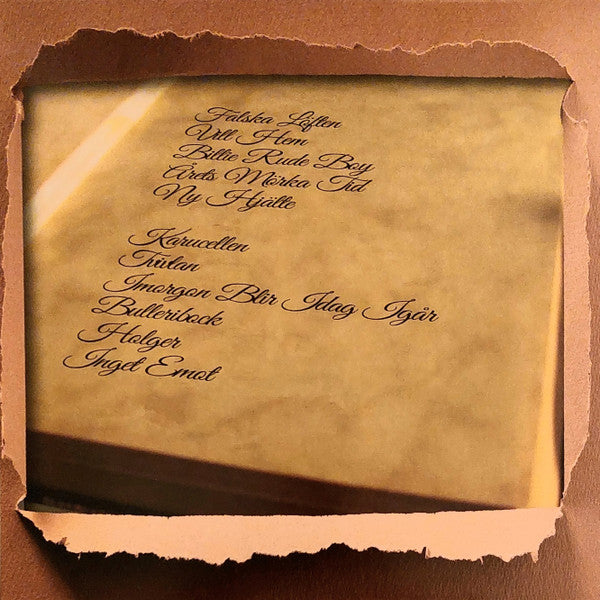 Falska Löften
Vill Hem
Billie Rude Boy
Årets Mörka Tid
Ny Hjälte
Karucellen
Tvivlan
Imorgon Blir Idag Igår
Bulleribock
Holger
Inget Emot